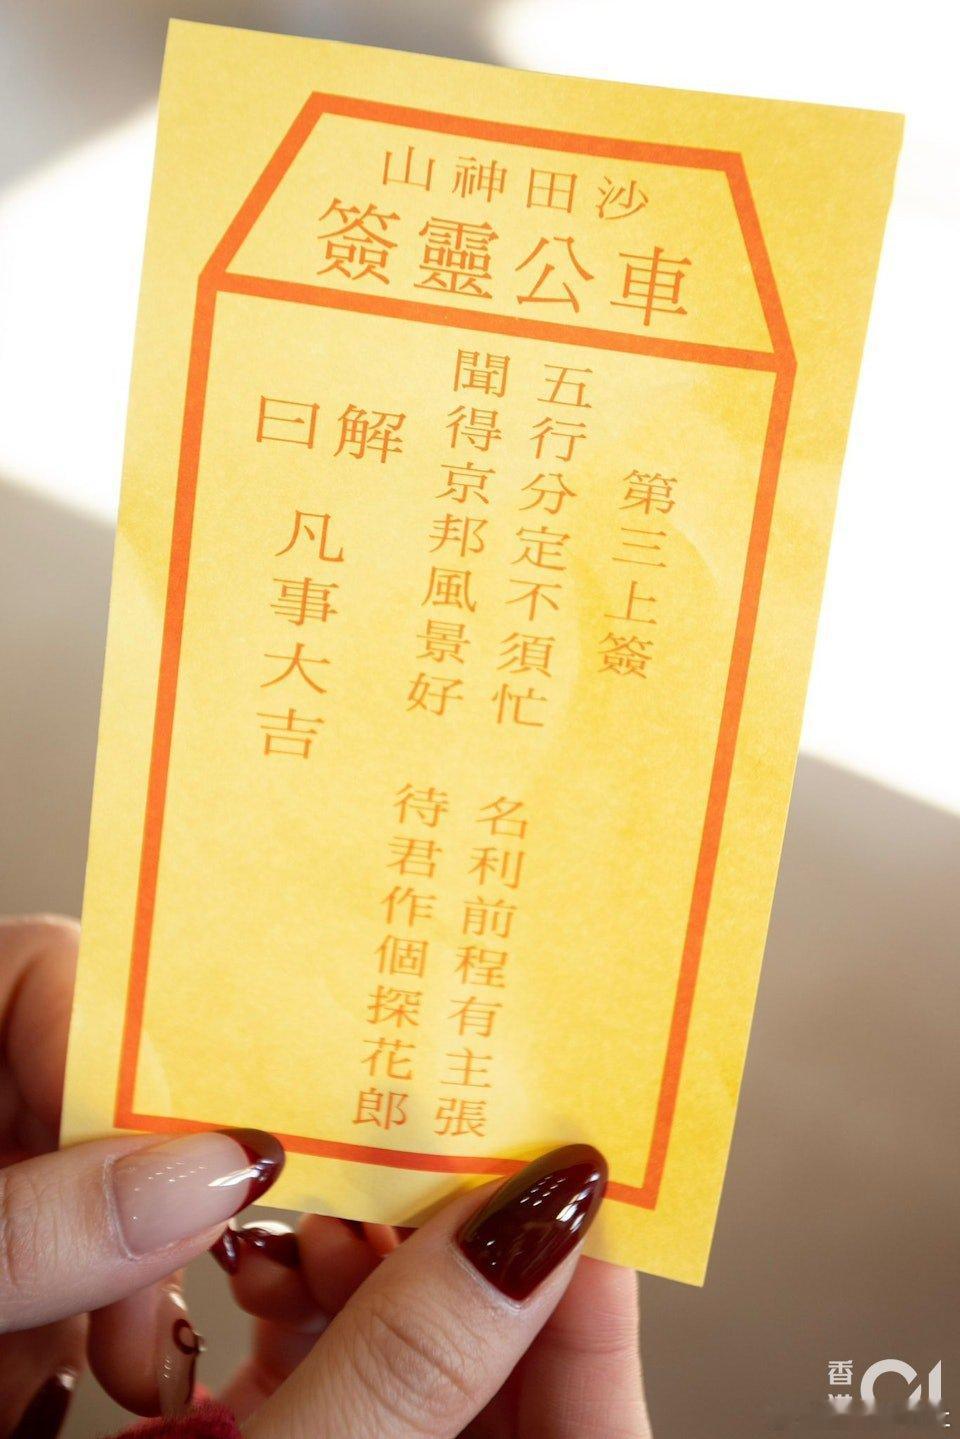 沙田神山
車公靈簽
第三上簽
五行分定不須忙
名利前程有主張
聞得京邦風景好
待君作個探花郎
解曰
凡事大吉
香港01